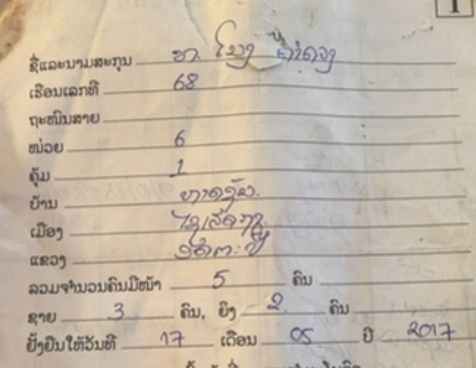 1
ຊື່ແລະນາມສະກຸນ ທ. ໂນງ
ເຮືອນເລກທີ 68
ຖະໜົນສາຍ
ໜ່ວຍ 6
ຄຸ້ມ 1
ບ້ານ
ເມືອງ ໄຊເສດຖາ
ແຂວງ ອັດຕະປື
ລວມຈຳນວນຄົນມີໜ້າ 5 ຄົນ
ຊາຍ 3 ຄົນ, ຍິງ 2 ຄົນ
ຢັ້ງຢືນໃຫ້ວັນທີ 17 ເດືອນ 05 ປີ 2017